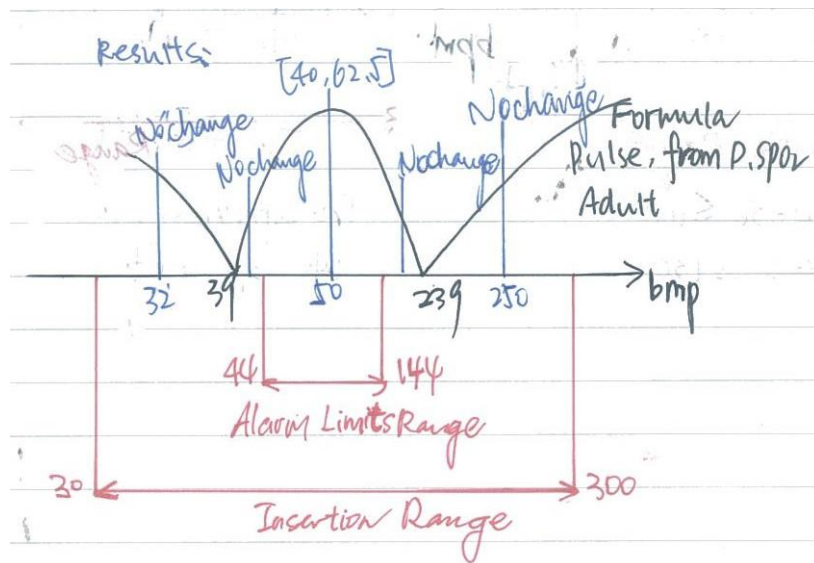 Results:
[40,62.5]
Nochange
Nochange
Nochange
Nochange
Formula
Pulse, from P, SPO2
Adult
32
39
50
239
250
bmp
44
144
Alarm Limits Range
30
300
Insertion Range